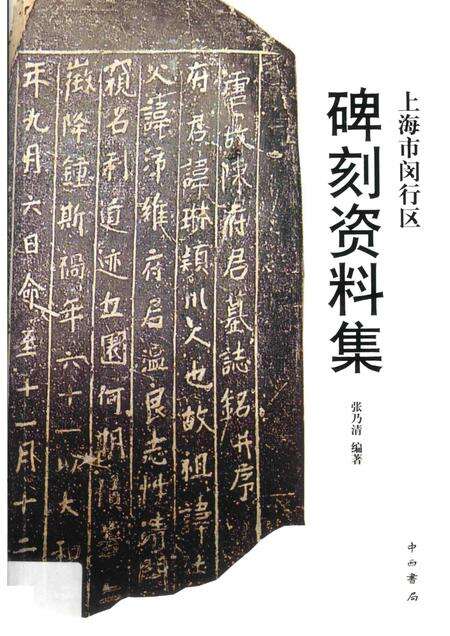 上海市闵行区
碑刻资料集
张乃清 编著
中西书局
唐故陳府君墓誌銘并序
府君諱琳潁川人也故祖諱
父諱 維府君温良志性晴閑
窺名利道迹丘園何期
徵降鍾斯禍年六十一以大和
年九月六日命至十一月十二